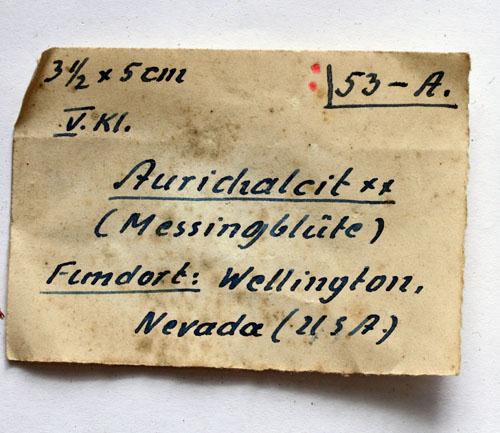 3 1/2 x 5 cm
53 - A.
V. Kl.
Aurichalcit xx
(Messingblüte)
Fundort: Wellington,
Nevada (USA.)